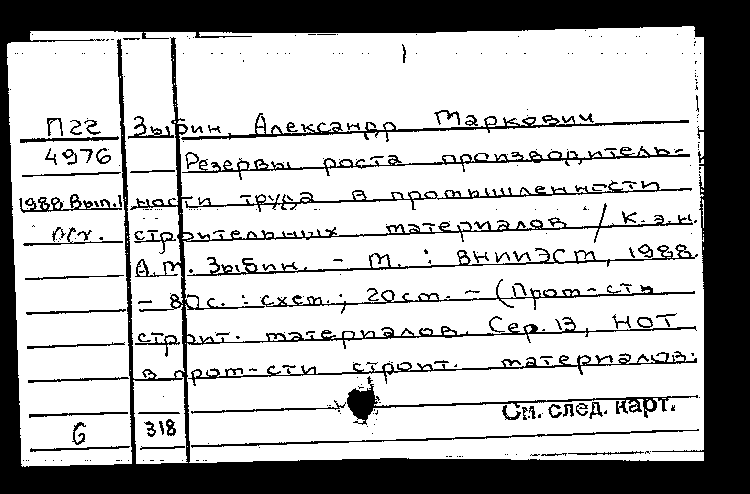 Пгг Зыбин, Александр Маркович
4976 Резервы роста производитель-
1988 Вып.1 ности труда в промышленности
осн. строительных материалов / К.э.н.
А.М. Зыбин. - М. : ВНИИЭСМ, 1988.
- 80с. : схем.; 20см. - (Пром-сть
строит. материалов. Сер. 13, НОТ
в пром-сти строит. материалов:
См. след. карт.
6 318